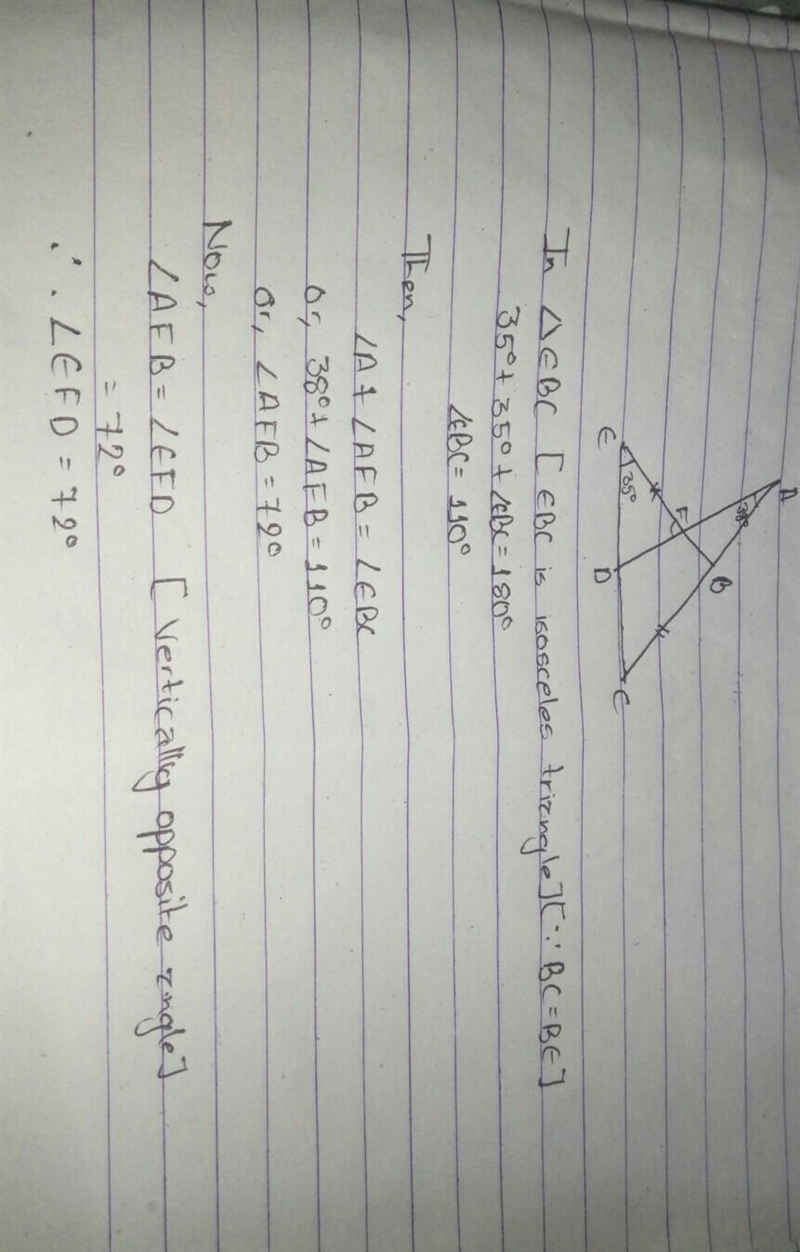 A
38°
B
F
E
35°
D
C
In ∆EBC [EBC is isosceles triangle] [∵ BC=BE]
35°+35°+∠EBC=180°
∠EBC=110°
Then,
∠A+∠AFB=∠EBC
or, 38°+∠AFB=110°
or, ∠AFB=72°
Now,
∠AFB=∠EFD [Vertically opposite angle]
=72°
∴ ∠EFD=72°